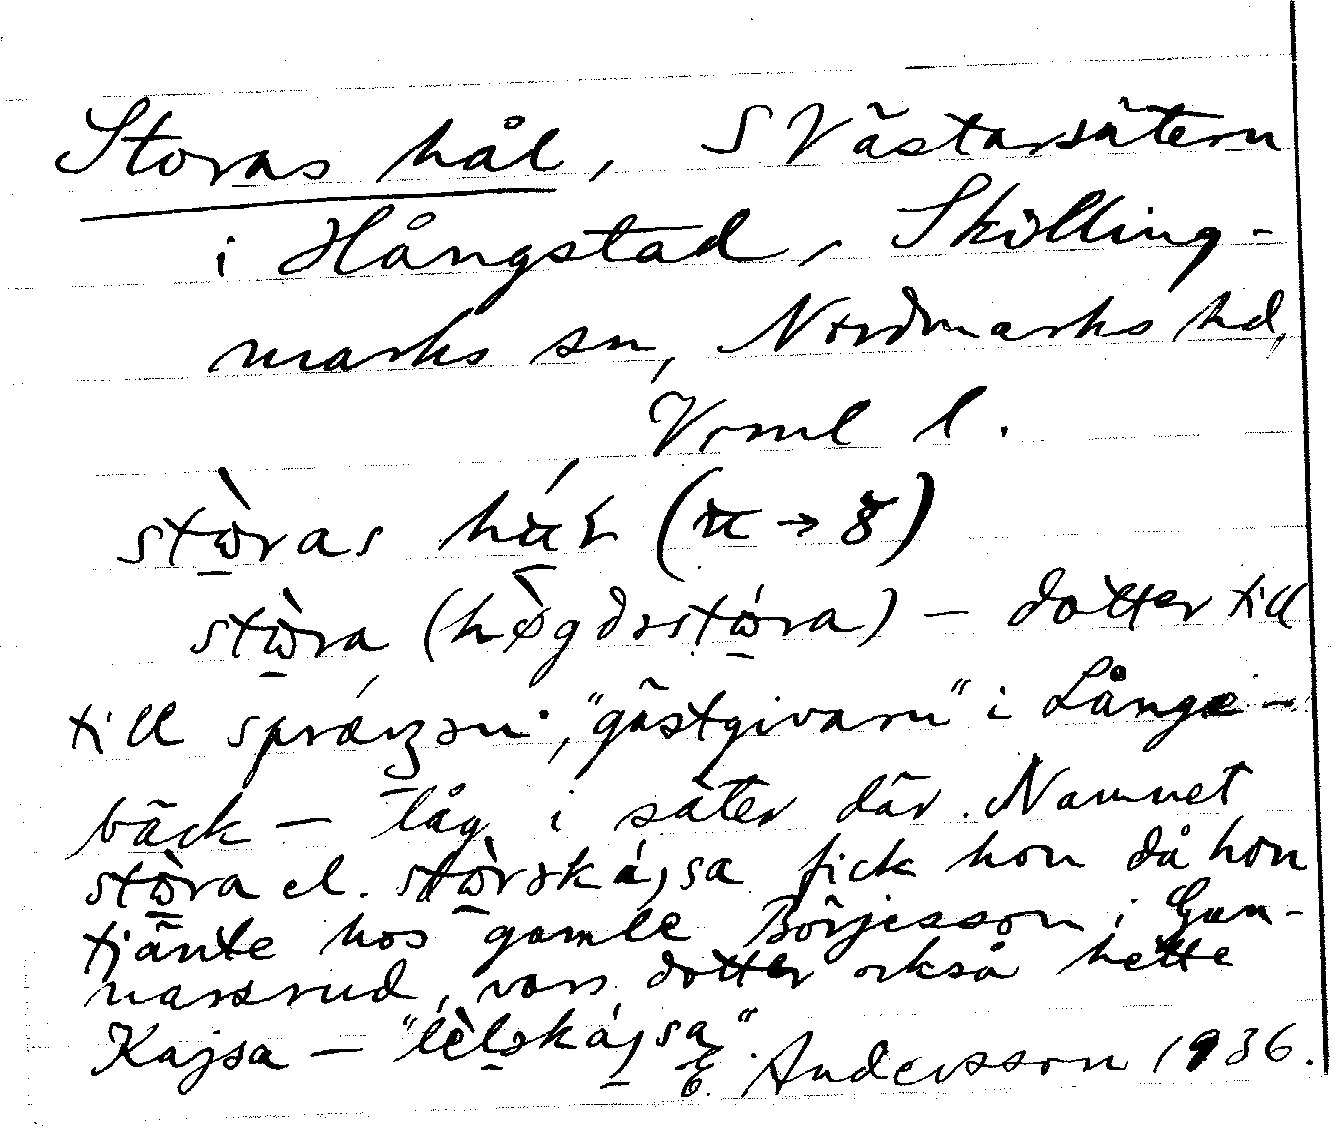 Storas hål, S Västarsätern
i Hångstad, Skilling-
marks sn, Nordmarks hd,
Vrml l.
stòras
stòra (høgdəstóra) – dotter till
till "gästgivarn" i Långe-
bäck – låg i säter där. Namnet
stòra el. stòrəskájsa fick hon då hon
tjänte hos gamle Börjesson i Gun-
narsrud, vars dotter också hette
Kajsa – "lèləkájsa".
E. Andersson 1936.